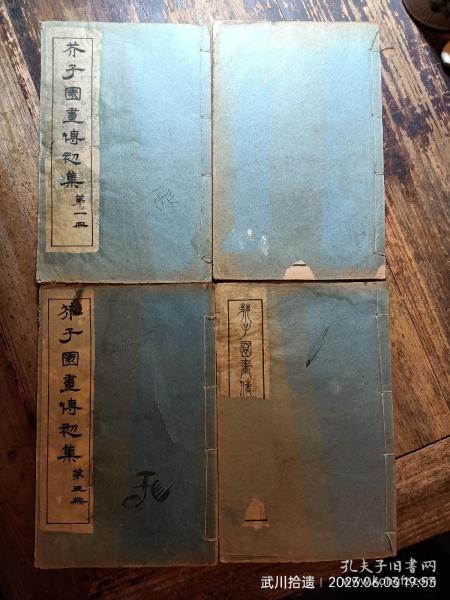 芥子園畫傳初集
第一冊
芥子園畫傳初集
第三冊
芥子園畫傳
孔夫子旧书网
武川拾遗 | 2025.06.03 19:53
www.kongfz.com